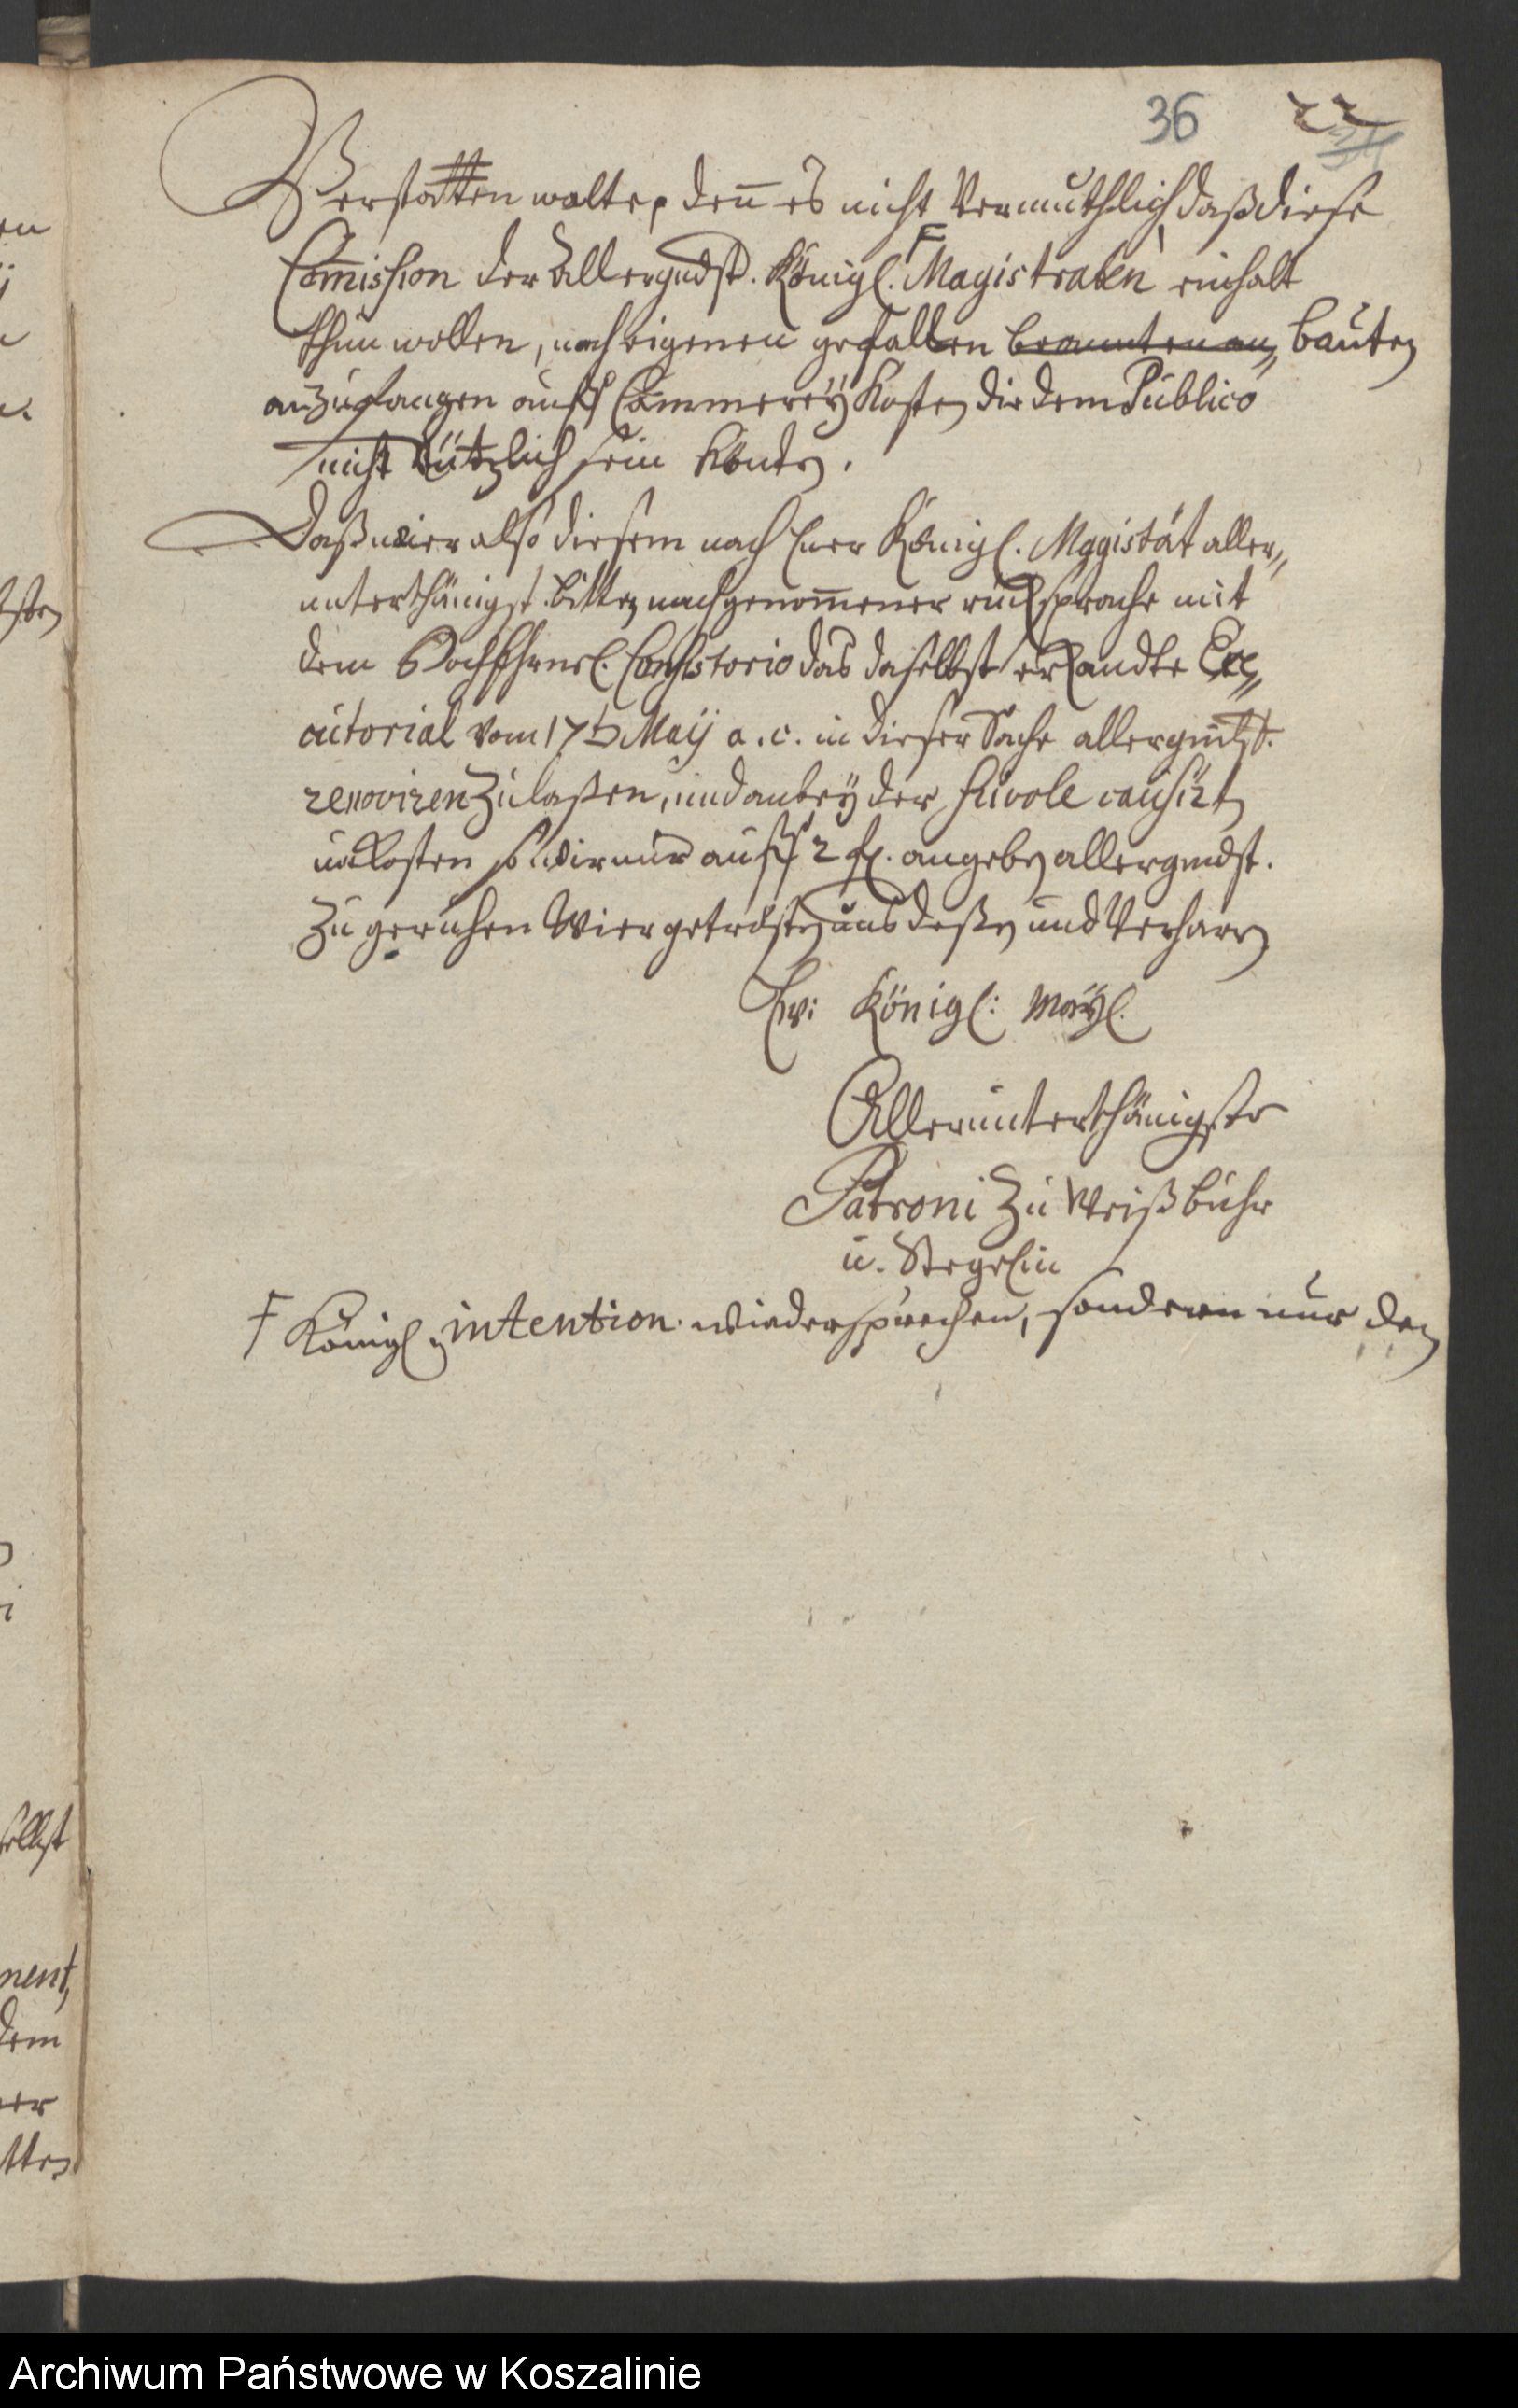 36 22
34
Verstatten wolte, denn es nicht Vermuthlich, daß diese
Commission der Allergndst. Königl. F Magistraten einhalt
thun wollen, nach eigenen gefallen bauten
anzufangen auff Cämmerey Kosten die dem Publico
nicht Nützlich sein könten.
Daß wier also diesem nach Euer Königl. Magistät aller„
unterthänigst bitten nach genommener rücksprache mit
dem Hochfürstl. Consistorio das daselbst erkandte Exe„
cutorial vom 17t Maij a. c. in dieser Sache allergndst.
renoviren zulaßen, und anbey der frivole causirten
unkosten so wir nur auff 2 fl. angeben allergndst.
zu geruhen Wier getrösten uns deßen und Verharren
Ew: Königl: Mayl.
Allerunterthänigste
Patroni zu Weißbuhr
u. Stegelin
F Königl. intention wiedersprechen, sondern nur den
en
selbst
ment,
dem
er
tten
Archiwum Państwowe w Koszalinie